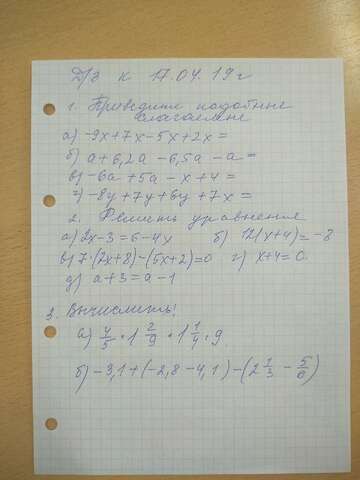 Д/З к 17.04.19г
1. Приведите подобные
слагаемые
а) -9x+7x-5x+2x=
б) a+6,2a-6,5a-a=
в) -6a+5a-x+4=
г) -8y+7y+6y+7x=
2. Решить уравнения
а) 2x-3=6-4x б) 12(x+4)=-8
в) 7·(2x+8)-(5x+2)=0 г) x+4=0
д) a+3=a-1
3. Вычислить!
а) 4/5 · 1 2/9 · 1 1/4 · 9
б) -3,1+(-2,8-4,1)-(2 1/3 - 5/6)